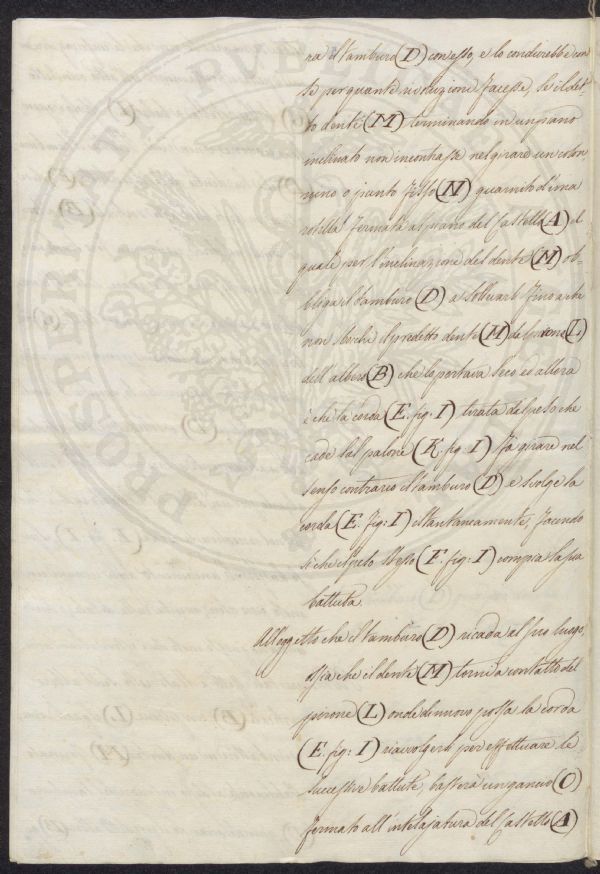 ra il tamburo (D) con esso, e lo condurrebbe con
se per quante rivoluzioni facesse, se il det
to dente (M) terminando in un piano
inclinato non incontrasse nel girare un colon
nino o punto fisso (N) guarnito d'una
rotella fermata al piano del Castello (A) il
quale per l'inclinazione del dente (M) ob-
bliga il tamburo (D) a sollevarsi fino a che
non sbocchi il predetto dente (M) dal pirone (L)
dell'albero (B) che lo portava seco ed allora
è che la corda (E. fig: I) tirata dal peso che
cade sul palone (K. fig: I) fa girare nel
senso contrario il tamburo (D) e svolge la
corda (E. fig: I) istantaneamente, facendo
si che il peso stesso (F. fig: I) compia la sua
battuta.
All'oggetto che il tamburo (D) ricada al suo luogo,
ossia che il dente (M) torni a contatto del
pirone (L) onde di nuovo possa la corda
(E. fig: I) riavvolgersi per effettuare le
successive battute, basterà un gancio (O)
fermato all'intelajatura del Castello (A)
PROSPERITATI PUBLICAE